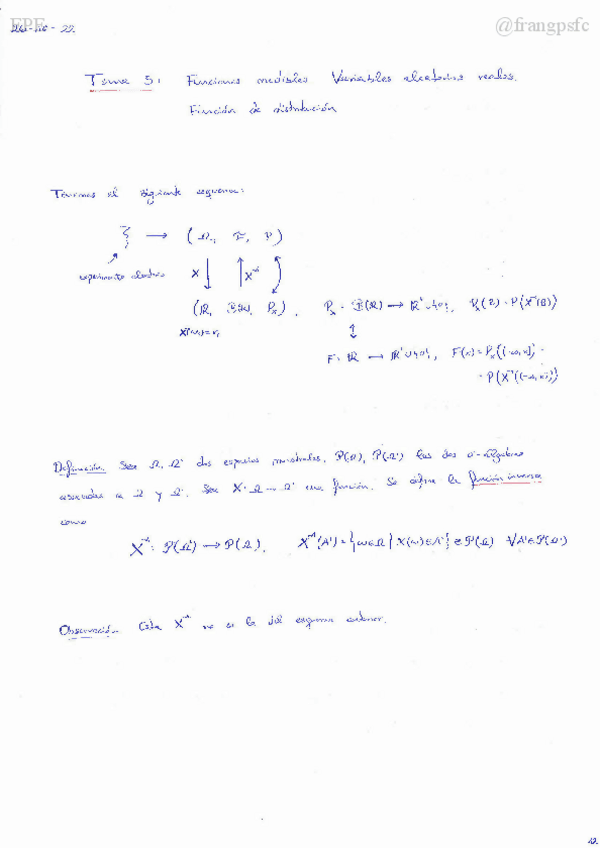 EPE
@frangpsfc
Tema 5: Funciones medibles. Variables aleatorias reales.
Función de distribución
Tenemos el siguiente esquema:
ξ ⟶ (Ω, F, P)
experimento aleatorio X ↓ ↑ X⁻¹
(ℝ, B(ℝ), Pₓ).
Pₓ: B(ℝ) ⟶ ℝ⁺∪{0}, Pₓ(B) = P(X⁻¹(B))
F: ℝ ⟶ ℝ⁺∪{0}, F(x) = Pₓ((-∞, x]) =
= P(X⁻¹((-∞, x]))
Definición. Sean Ω, Ω' dos espacios muestrales, P(Ω), P(Ω') las dos σ-álgebras
asociadas a Ω y Ω'. Sea X: Ω ⟶ Ω' una función. Se define la función inversa
como
X⁻¹: P(Ω') ⟶ P(Ω), X⁻¹(A') = {ω∈Ω | X(ω)∈A'} ∈ P(Ω) ∀A'∈P(Ω')
Observación. Esta X⁻¹ no es la del esquema anterior.
12